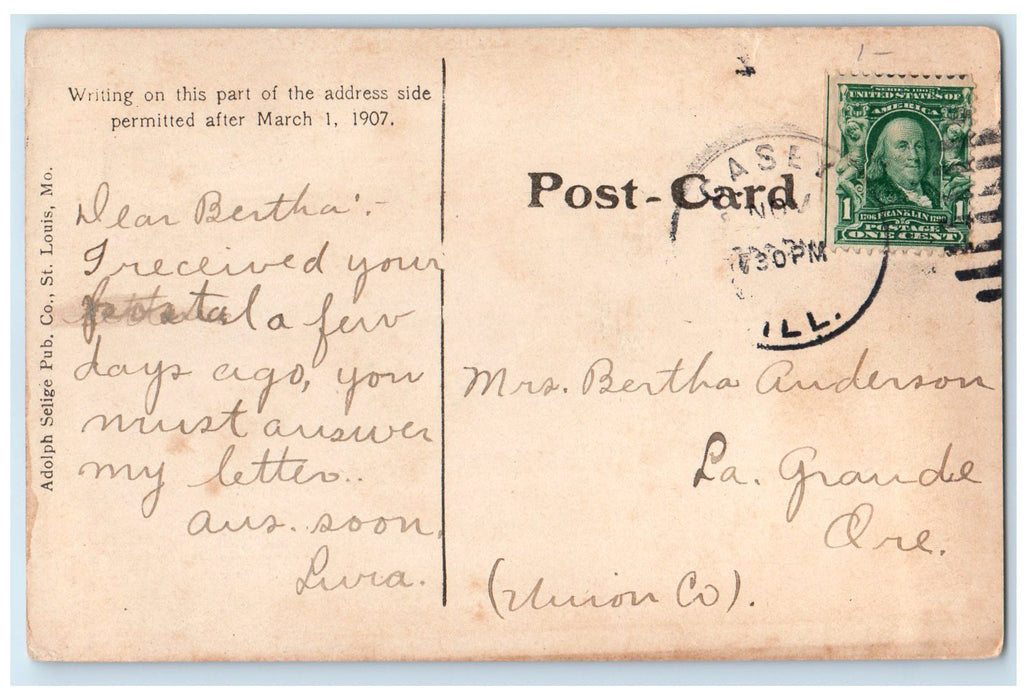 Writing on this part of the address side
permitted after March 1, 1907.
Adolph Selige Pub. Co., St. Louis, Mo.
Dear Bertha:-
I received your
postal a few
days ago, you
must answer
my letter..
ans. soon.
Post-Card
CASEY
NOV
30PM
ILL.
SERIES 1902
UNITED STATES OF
AMERICA
1706 FRANKLIN 1790
1 1
POSTAGE
ONE CENT
Mrs. Bertha Anderson
La. Grande
Ore.
(Union Co).